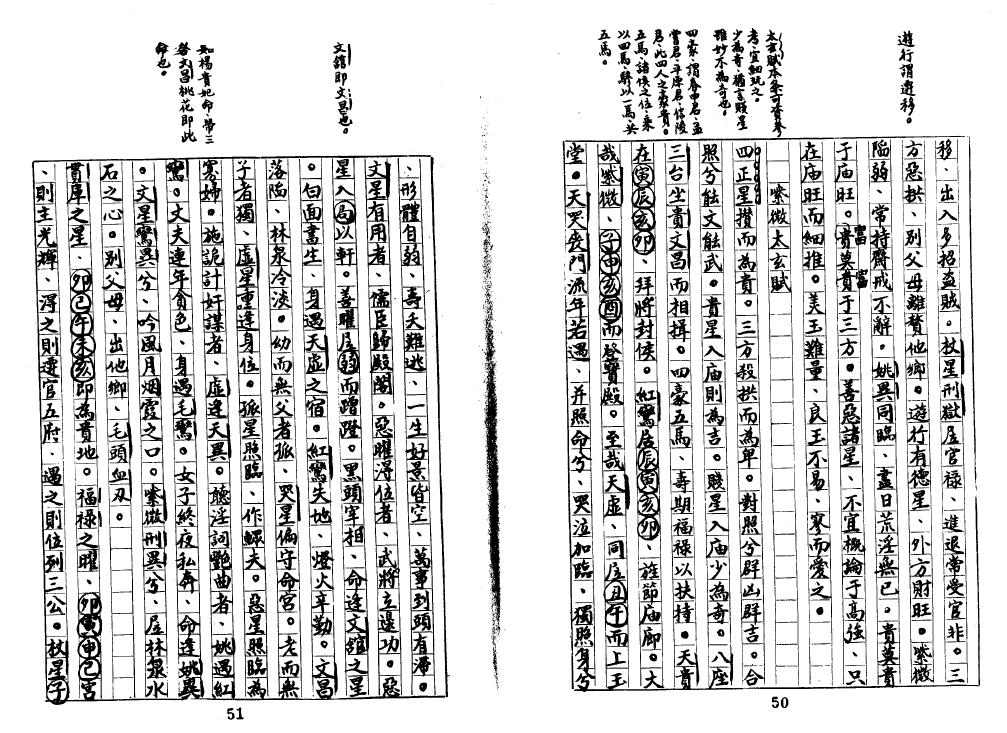 遊行謂遷移。
太玄賦本条可資參
考、宜細玩之。
少為奇、猶言賤星
雖妙不為奇也。
四豪、謂春申君、孟
嘗君、平原君、信陵
君、此四人之豪貴。
五馬、諸侯之位、乘
以四馬、駢以一馬、共
五馬。
移、出入多招盜賊。杖星刑獄居官祿、進退常受官非。三
方惡拱、別父母離贅他鄉。遊行有德星、外方財旺。紫微
陷弱、常持齋戒不解。姚異同臨、盡日荒淫無已。貴莫貴
于庙旺。富莫富于三方。善惡諸星、不宜概論于高強、只
在庙旺而細推。美玉難量、良玉不易、寥而愛之。
紫微太玄賦
四正星攢而為貴。三方殺拱而為卑。對照兮群凶群吉。合
照兮能文能武。貴星入庙則為吉。賤星入庙少為奇。八座
三台坐貴文昌而相揖。四豪五馬、壽期福祿以扶持。天貴
在寅辰亥卯、拜將封侯。紅鸞居辰寅亥卯、旌節庙廊。大
哉紫微、子申亥酉而登寶殿。至哉天虛、同居丑午而上玉
堂。天哭喪門流年若遇、并照命兮、哭泣加臨、獨照身兮
50
文舘即文昌也。
如楊貴妃命、帶三
咎文昌桃花即此
命也。
、形體自弱、壽夭難逃、一生好景皆空、萬事到頭有滯。
文星有用者、儒臣歸殿閣。惡曜淂位者、武將立邊功。惡
星入局以軒。善曜居弱而蹭蹬。黑頭宰相、命逢文舘之星
。白面書生、身遇天虛之宿。紅鸞失地、燈火辛勤。文昌
落陷、林泉冷淡。幼而無父者孤、哭星偏守命宮。老而無
子者獨、虛星重逢身位。孤星照臨、作鰥夫。惡星照臨為
寡婦。施詭計奸謀者、虛逢天異。聽淫詞艷曲者、姚遇紅
鸞。丈夫連年貪色、身遇毛鸞。女子終夜私奔、命逢姚異
。文星鸞異兮、吟風月烟霞之口。紫微刑異兮、居林泉水
石之心。別父母、出他鄉、毛頭血刃。
貫庫之星、卯巳午未亥即為貴地。福祿之曜、卯寅申巳宮
、則主光輝、淂之則遷官五府、遇之則位列三公。杖星子
51